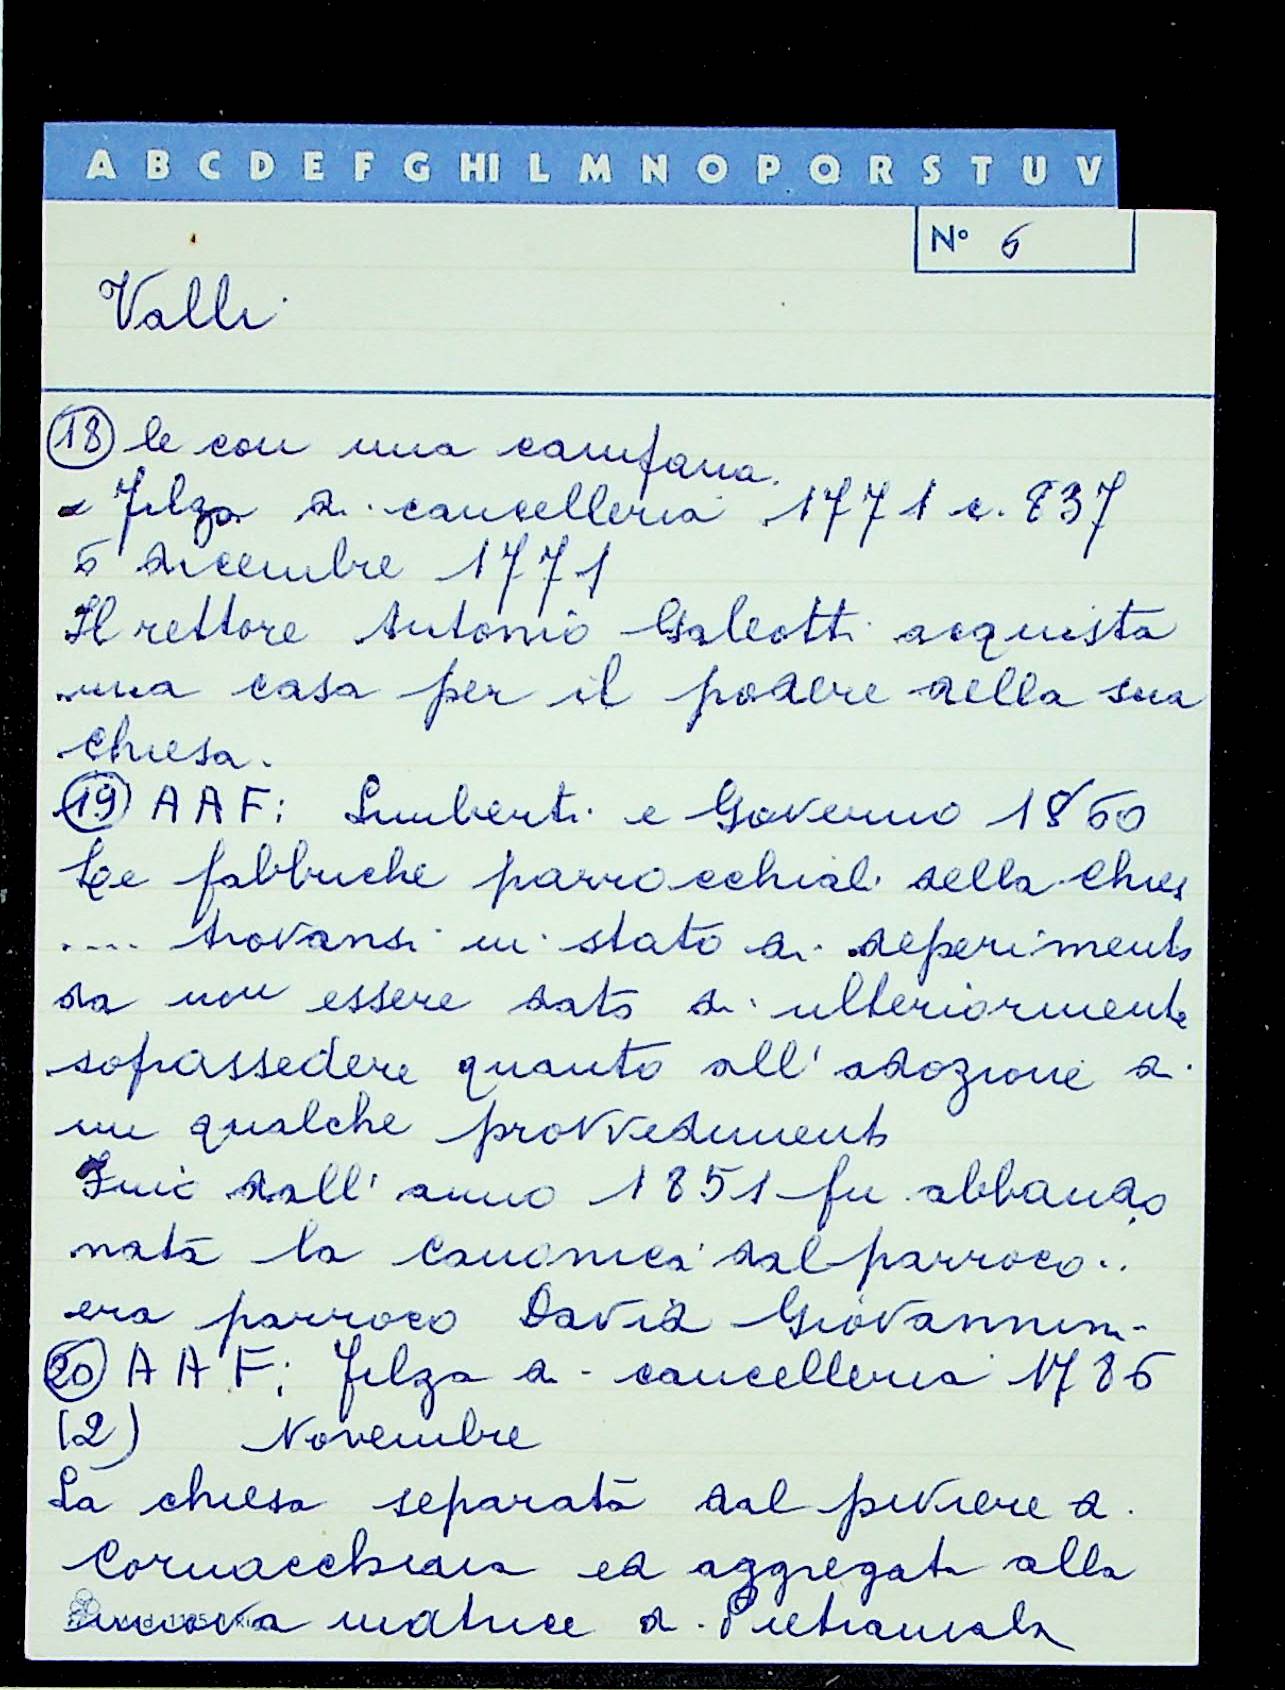 A B C D E F G HI L M N O P Q R S T U V
N° 6
Valli
18 le con una campana.
- Filza di cancelleria 1771 c. 837
6 dicembre 1771
Il rettore Antonio Galeotti acquista
una casa per il podere della sua
chiesa.
19 A A F: Limberti e Governo 1860
Le fabbriche parrocchiali della chies
.... trovansi in stato di deperimento
da non essere dato di ulteriormente
soprassedere quanto all'adozione di
un qualche provvedimento
Fino dall'anno 1851 fu abbando
nata la canonica dal parroco..
era parroco David Giovannini-
20 A A F: Filza di cancelleria 1786
(2) Novembre
La chiesa separata dal piviere di
Cornacchiaia ed aggregata alla
nuova matrice di Pietramala